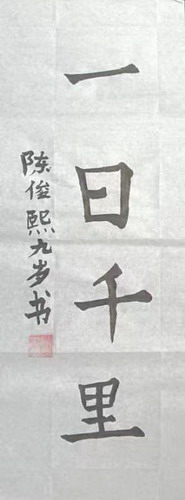 一日千里
陈俊熙九岁书